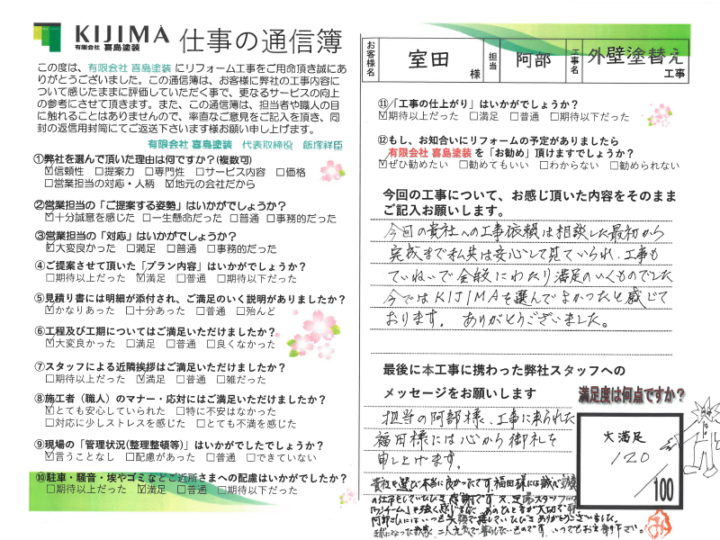 KIJIMA
有限会社 喜島塗装
仕事の通信簿
この度は、有限会社 喜島塗装 にリフォーム工事をご用命頂き誠にあ
りがとうございました。この通信簿は、お客様に弊社の工事内容に
ついて感じたままに評価していただく事で、更なるサービスの向上
の参考にさせて頂きます。また、この通信簿は、担当者や職人の目
に触れることはありませんので、率直なご意見をご記入を頂き、同
封の返信用封筒にてご返送下さいます様お願い申し上げます。
有限会社 喜島塗装 代表取締役 飯塚祥臣
①弊社を選んで頂いた理由は何ですか?(複数可)
☑信頼性 □提案力 □専門性 □サービス内容 □価格
□営業担当の対応・人柄 ☑地元の会社だから
②営業担当の「ご提案する姿勢」はいかがでしょうか?
☑十分誠意を感じた □一生懸命だった □普通 □事務的だった
③営業担当の「対応」はいかがでしょうか?
☑大変良かった □満足 □普通 □事務的だった
④ご提案させて頂いた「プラン内容」はいかがでしょうか?
□期待以上だった ☑満足 □普通 □期待以下だった
⑤見積り書には明細が添付され、ご満足のいく説明がありましたか?
☑かなりあった □十分あった □普通 □殆んど
⑥工程及び工期についてはご満足いただけましたか?
☑大変良かった □満足 □普通 □良くなかった
⑦スタッフによる近隣挨拶はご満足いただけましたか?
□期待以上だった ☑満足 □普通 □雑だった
⑧施工者（職人）のマナー・応対にはご満足いただけましたか?
☑とても安心していられた □特に不安はなかった
□対応に少しストレスを感じた □とても不満を感じた
⑨現場の「管理状況(整理整頓等)」はいかがでしたでしょうか?
☑言うことなし □配慮があった □普通 □できていない
⑩駐車・騒音・埃やゴミなどご近所さまへの配慮はいかがでしたか?
□期待以上だった ☑満足 □普通 □期待以下だった
お客様名 室田 様 担当 阿部 工事名 外壁塗替え 工事
⑪「工事の仕上がり」はいかがでしょうか?
☑期待以上だった □満足 □普通 □期待以下だった
⑫もし、お知合いにリフォームの予定がありましたら
有限会社 喜島塗装 を「お勧め」頂けますでしょうか?
☑ぜひ勧めたい □勧めてもいい □わからない □勧められない
今回の工事について、お感じ頂いた内容をそのまま
ご記入お願いします。
今回の貴社への工事依頼は相談した最初から
完成まで私共は安心して見ていられ、工事も
ていねいで全般にわたり満足のいくものでした
今ではKIJIMAを選んでよかったと感じて
おります。ありがとうございました。
最後に本工事に携わった弊社スタッフへの
メッセージをお願いします
担当の阿部様、工事に来られた
福田様には心から御礼を
申し上げます。
満足度は何点ですか?
大満足
120
/100